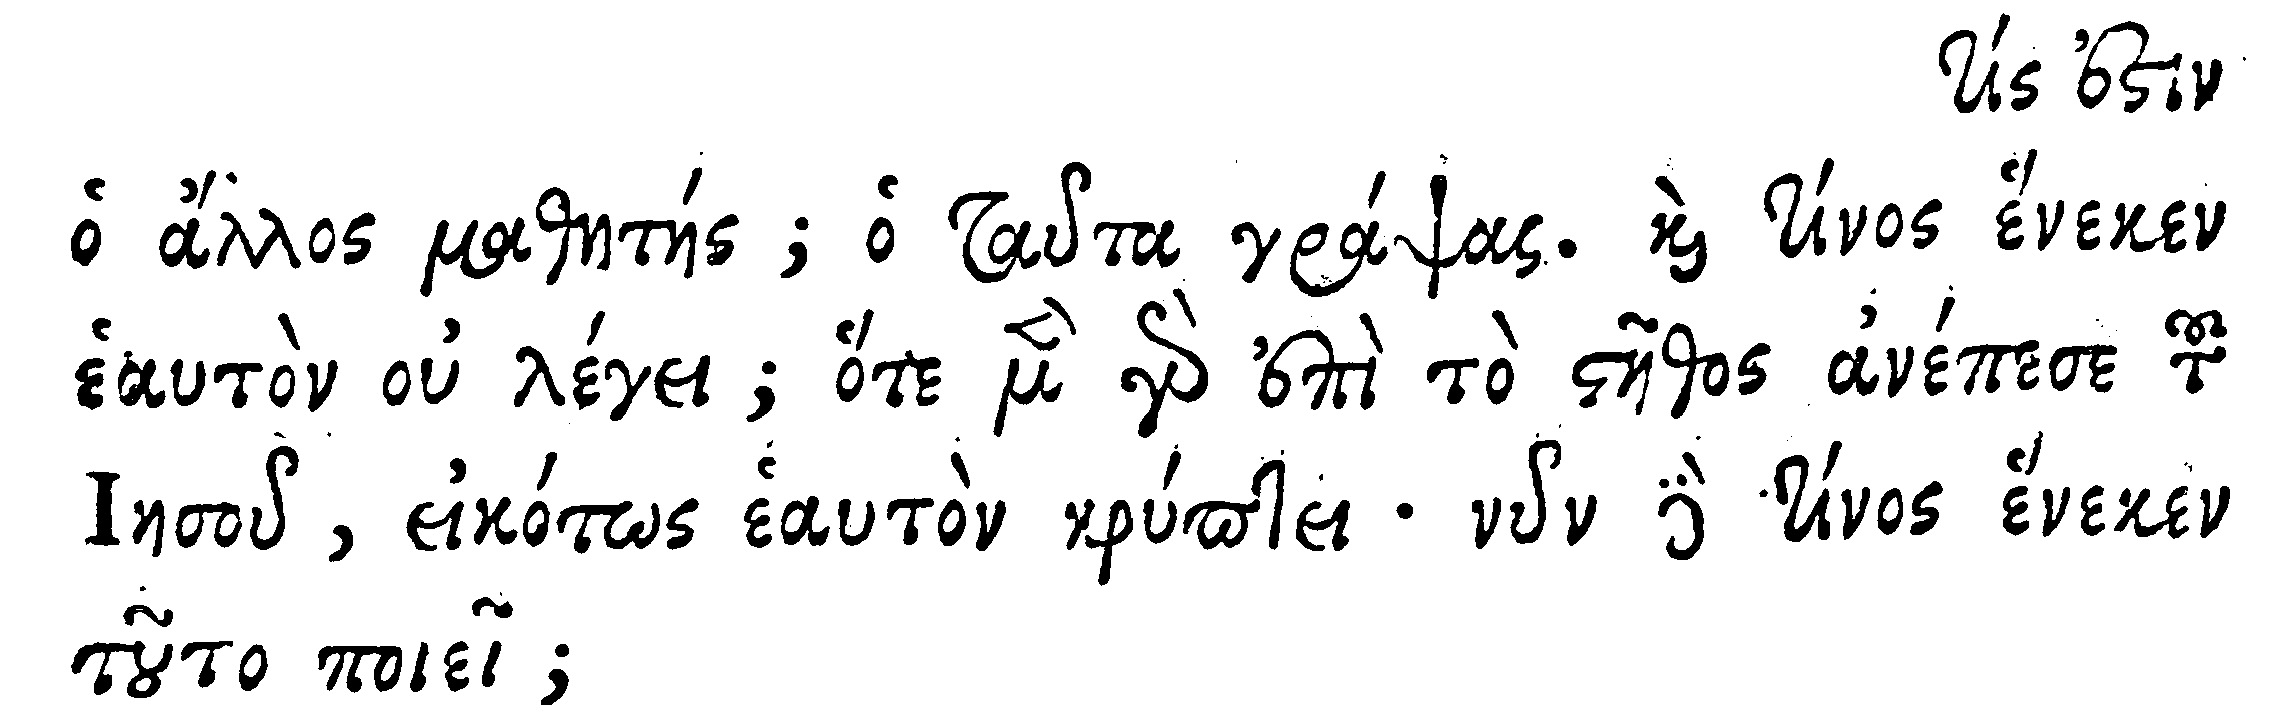 τίς ἐστιν
ὁ ἄλλος μαθητής; ὁ ταῦτα γράψας. καὶ τίνος ἕνεκεν
ἑαυτὸν οὐ λέγει; ὅτε μὲν γὰρ ἐπὶ τὸ στῆθος ἀνέπεσε τοῦ
Ἰησοῦ, εἰκότως ἑαυτὸν κρύπτει· νῦν δὲ τίνος ἕνεκεν
τοῦτο ποιεῖ;